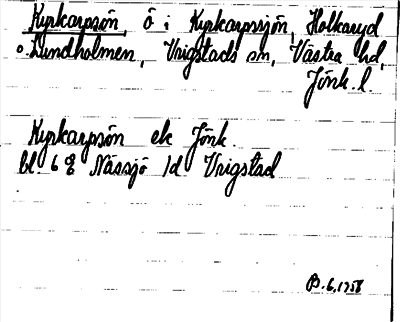 Kyrkarpsön, ö i Kyrkarpssjön, Holkaryd
o. Lundholmen, Vrigstads sn, Västra hd,
Jönk. l.
Kyrkarpsön ek Jönk.
bl. 6 g Nässjö 1d Vrigstad
B. 6, 1758